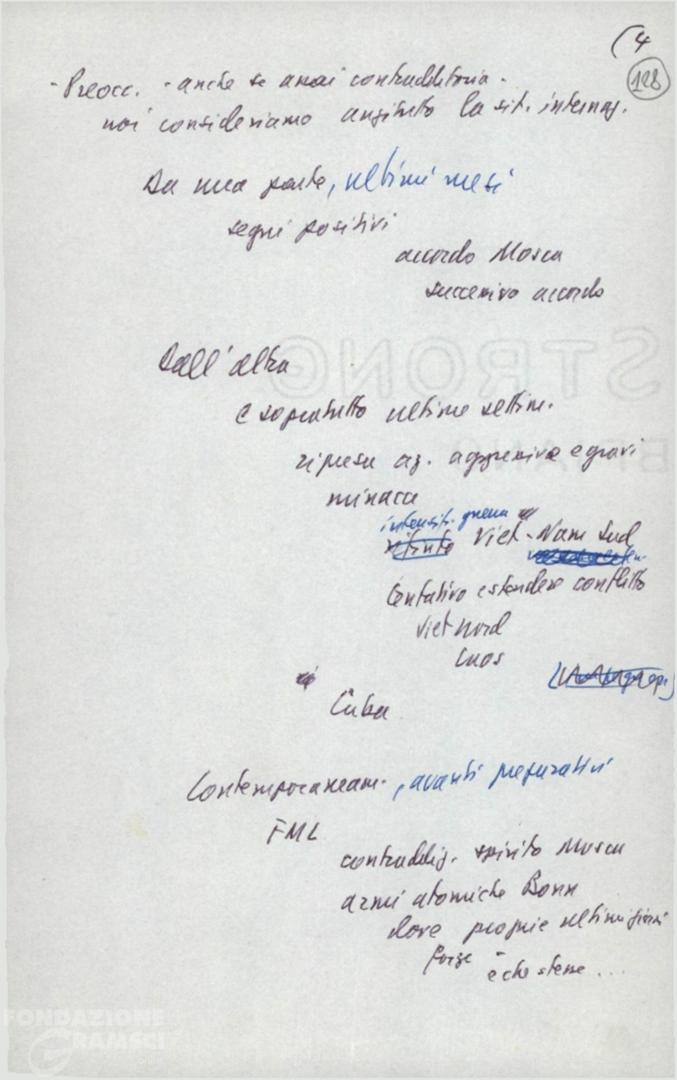 (4
128
- Preocc. - anche se assai contraddittoria -
noi consideriamo anzitutto la sit. internaz.
Da una parte, ultimi mesi
segni positivi
accordo Mosca
successivo accordo
Dall'altra
e sopratutto ultime settim.
ripresa az. aggressive e gravi
minacce
intensif. guerra
Viet-Nam Sud
tentativo estendere conflitto
Viet Nord
Laos
Cuba
Contemporaneam., avanti preparativi
FML
contraddiz. spirito Mosca
armi atomiche Bonn
dove proprie ultimi giorni
forze
e che stesse ...
STRONG
FONDAZIONE
GRAMSCI